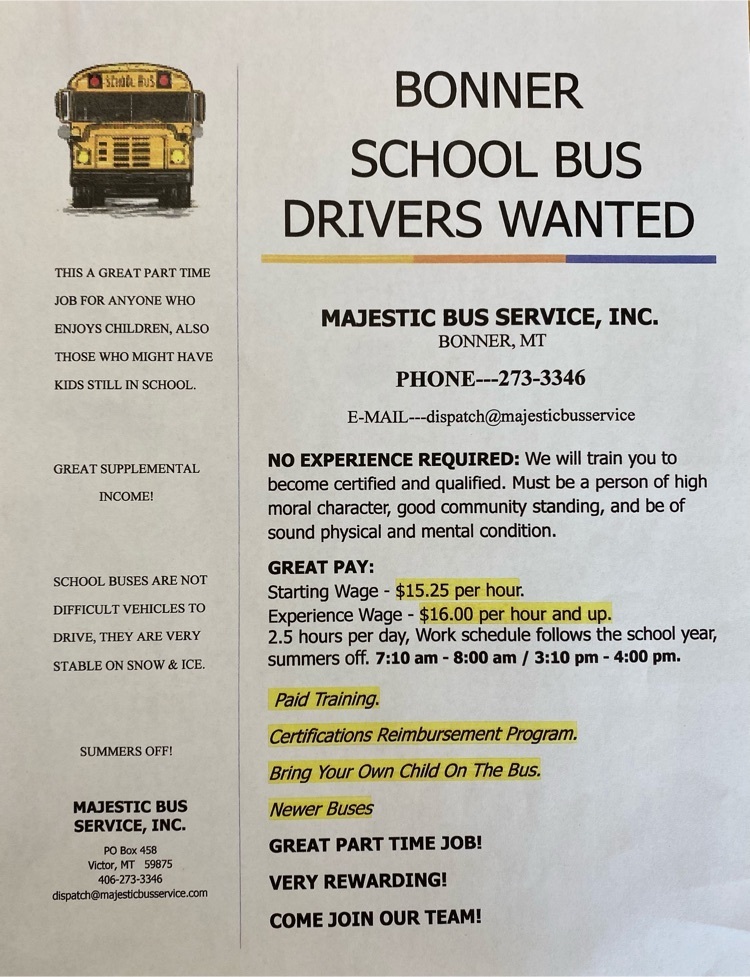 SCHOOL BUS
THIS A GREAT PART TIME
JOB FOR ANYONE WHO
ENJOYS CHILDREN, ALSO
THOSE WHO MIGHT HAVE
KIDS STILL IN SCHOOL.
GREAT SUPPLEMENTAL
INCOME!
SCHOOL BUSES ARE NOT
DIFFICULT VEHICLES TO
DRIVE, THEY ARE VERY
STABLE ON SNOW & ICE.
SUMMERS OFF!
MAJESTIC BUS
SERVICE, INC.
PO Box 458
Victor, MT 59875
406-273-3346
dispatch@majesticbusservice.com
BONNER
SCHOOL BUS
DRIVERS WANTED
MAJESTIC BUS SERVICE, INC.
BONNER, MT
PHONE---273-3346
E-MAIL---dispatch@majesticbusservice
NO EXPERIENCE REQUIRED: We will train you to
become certified and qualified. Must be a person of high
moral character, good community standing, and be of
sound physical and mental condition.
GREAT PAY:
Starting Wage - $15.25 per hour.
Experience Wage - $16.00 per hour and up.
2.5 hours per day, Work schedule follows the school year,
summers off. 7:10 am - 8:00 am / 3:10 pm - 4:00 pm.
Paid Training.
Certifications Reimbursement Program.
Bring Your Own Child On The Bus.
Newer Buses
GREAT PART TIME JOB!
VERY REWARDING!
COME JOIN OUR TEAM!